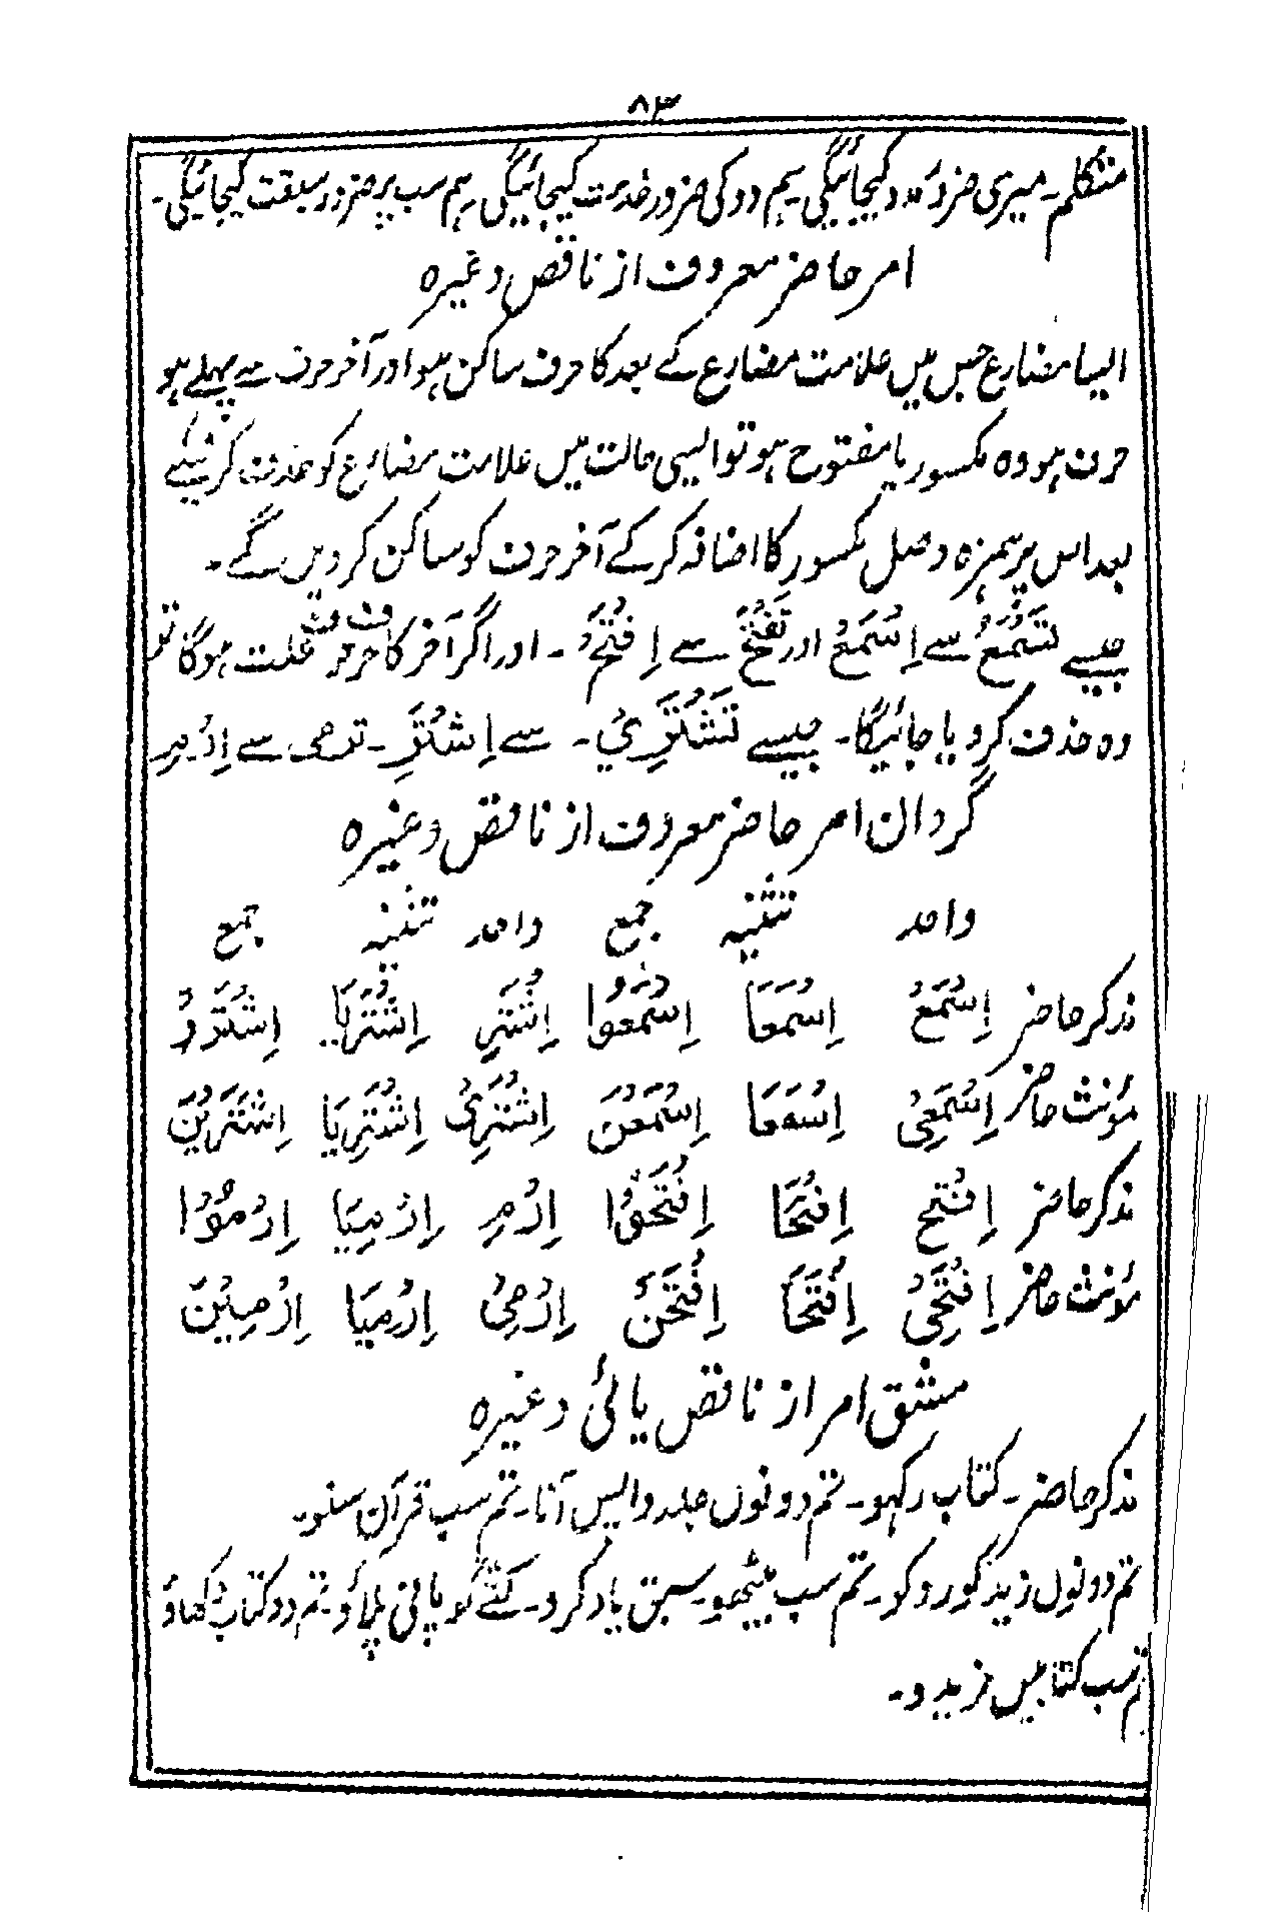 ۸۳
متکلم۔ میری ضرور مدد کیجائیگی ہم دو کی ضرور خدمت کیجائیگی ہم سب پر ضرور سبقت کیجائیگی۔
امر حاضر معروف از ناقص وغیرہ
ایسا مضارع جس میں علامت مضارع کے بعد کا حرف ساکن ہو اور آخر حرف سے پہلے ہو
حرف ہو وہ مکسور یا مفتوح ہو تو ایسی حالت میں علامت مضارع کو حذف کرنیکے
بعد اس پر ہمزہ وصل مکسور کا اضافہ کرکے آخر حرف کو ساکن کر دیں گے۔
جیسے تَسْمَعُ سے اِسْمَعْ اور تَفْتَحُ سے اِفْتَحْ۔ اور اگر آخر کا حرف حرف علت ہوگا تو
وہ حذف کر دیا جائیگا۔ جیسے تَشْتَرِيْ۔ سے اِشْتَرِ۔ ترمی سے اِرْمِ
گردان امر حاضر معروف از ناقص وغیرہ
واحد تثنیہ جمع واحد تثنیہ جمع
مذکر حاضر اِسْمَعْ اِسْمَعَا اِسْمَعُوْا اِشْتَرِ اِشْتَرِيَا اِشْتَرُوْ
مؤنث حاضر اِسْمَعِیْ اِسْمَعَا اِسْمَعْنَ اِشْتَرِیْ اِشْتَرِيَا اِشْتَرِيْنَ
مذکر حاضر اِفْتَحْ اِفْتَحَا اِفْتَحُوْا اِرْمِ اِرْمِيَا اِرْمُوْا
مؤنث حاضر اِفْتَحِیْ اِفْتَحَا اِفْتَحْنَ اِرْمِیْ اِرْمِيَا اِرْمِيْنَ
مشق امر از ناقص یائی وغیرہ
مذکر حاضر۔ کتاب رکھو۔ تم دونوں جلد واپس آنا۔ تم سب قرآن سنو۔
تم دونوں زید کو روکو۔ تم سب بیٹھو۔ سبق یاد کرو۔ کتے کو پانی پلاؤ۔ تم دو کتاب دکھاؤ
تم سب کتابیں خریدو۔